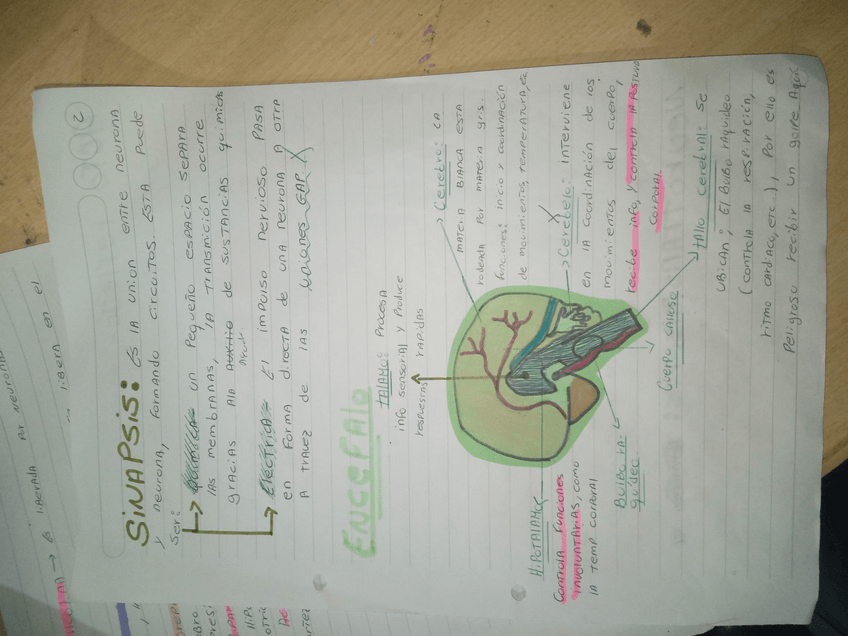 2
SINAPSIS: Es la union entre neurona
y neurona, formando circuitos. Esta puede
ser:
Quimica: un pequeño espacio separa
las membranas, la transmición ocurre
gracias ala de sustancias quimicas
Electrica: El impulso nervioso pasa
en forma directa de una neurona a otra
a travez de las uniones GAP X
ENCEFALO
tálamo: Procesa
info sensorial y produce
respuestas rapidas
Cerebro: la
materia blanca esta
rodeada por materia gris
funciones: inicio y coordinación
de movimientos, temperatura, es
X
Cerebelo: Interviene
en la coordinación de los
movimientos del cuerpo,
recibe info, y controla la postura
corporal
tallo cerebral: se
ubican; el Bulbo raquideo
(controla la respiración,
ritmo cardiaco, etc.), Por ello es
peligroso recibir un golpe Aquí
Cuerpo calloso
Bulbo ra-
quideo
Hipotalamo
Controla funciones
involuntarias, como
la temp corporal
es liberada
por neurona
libera en el